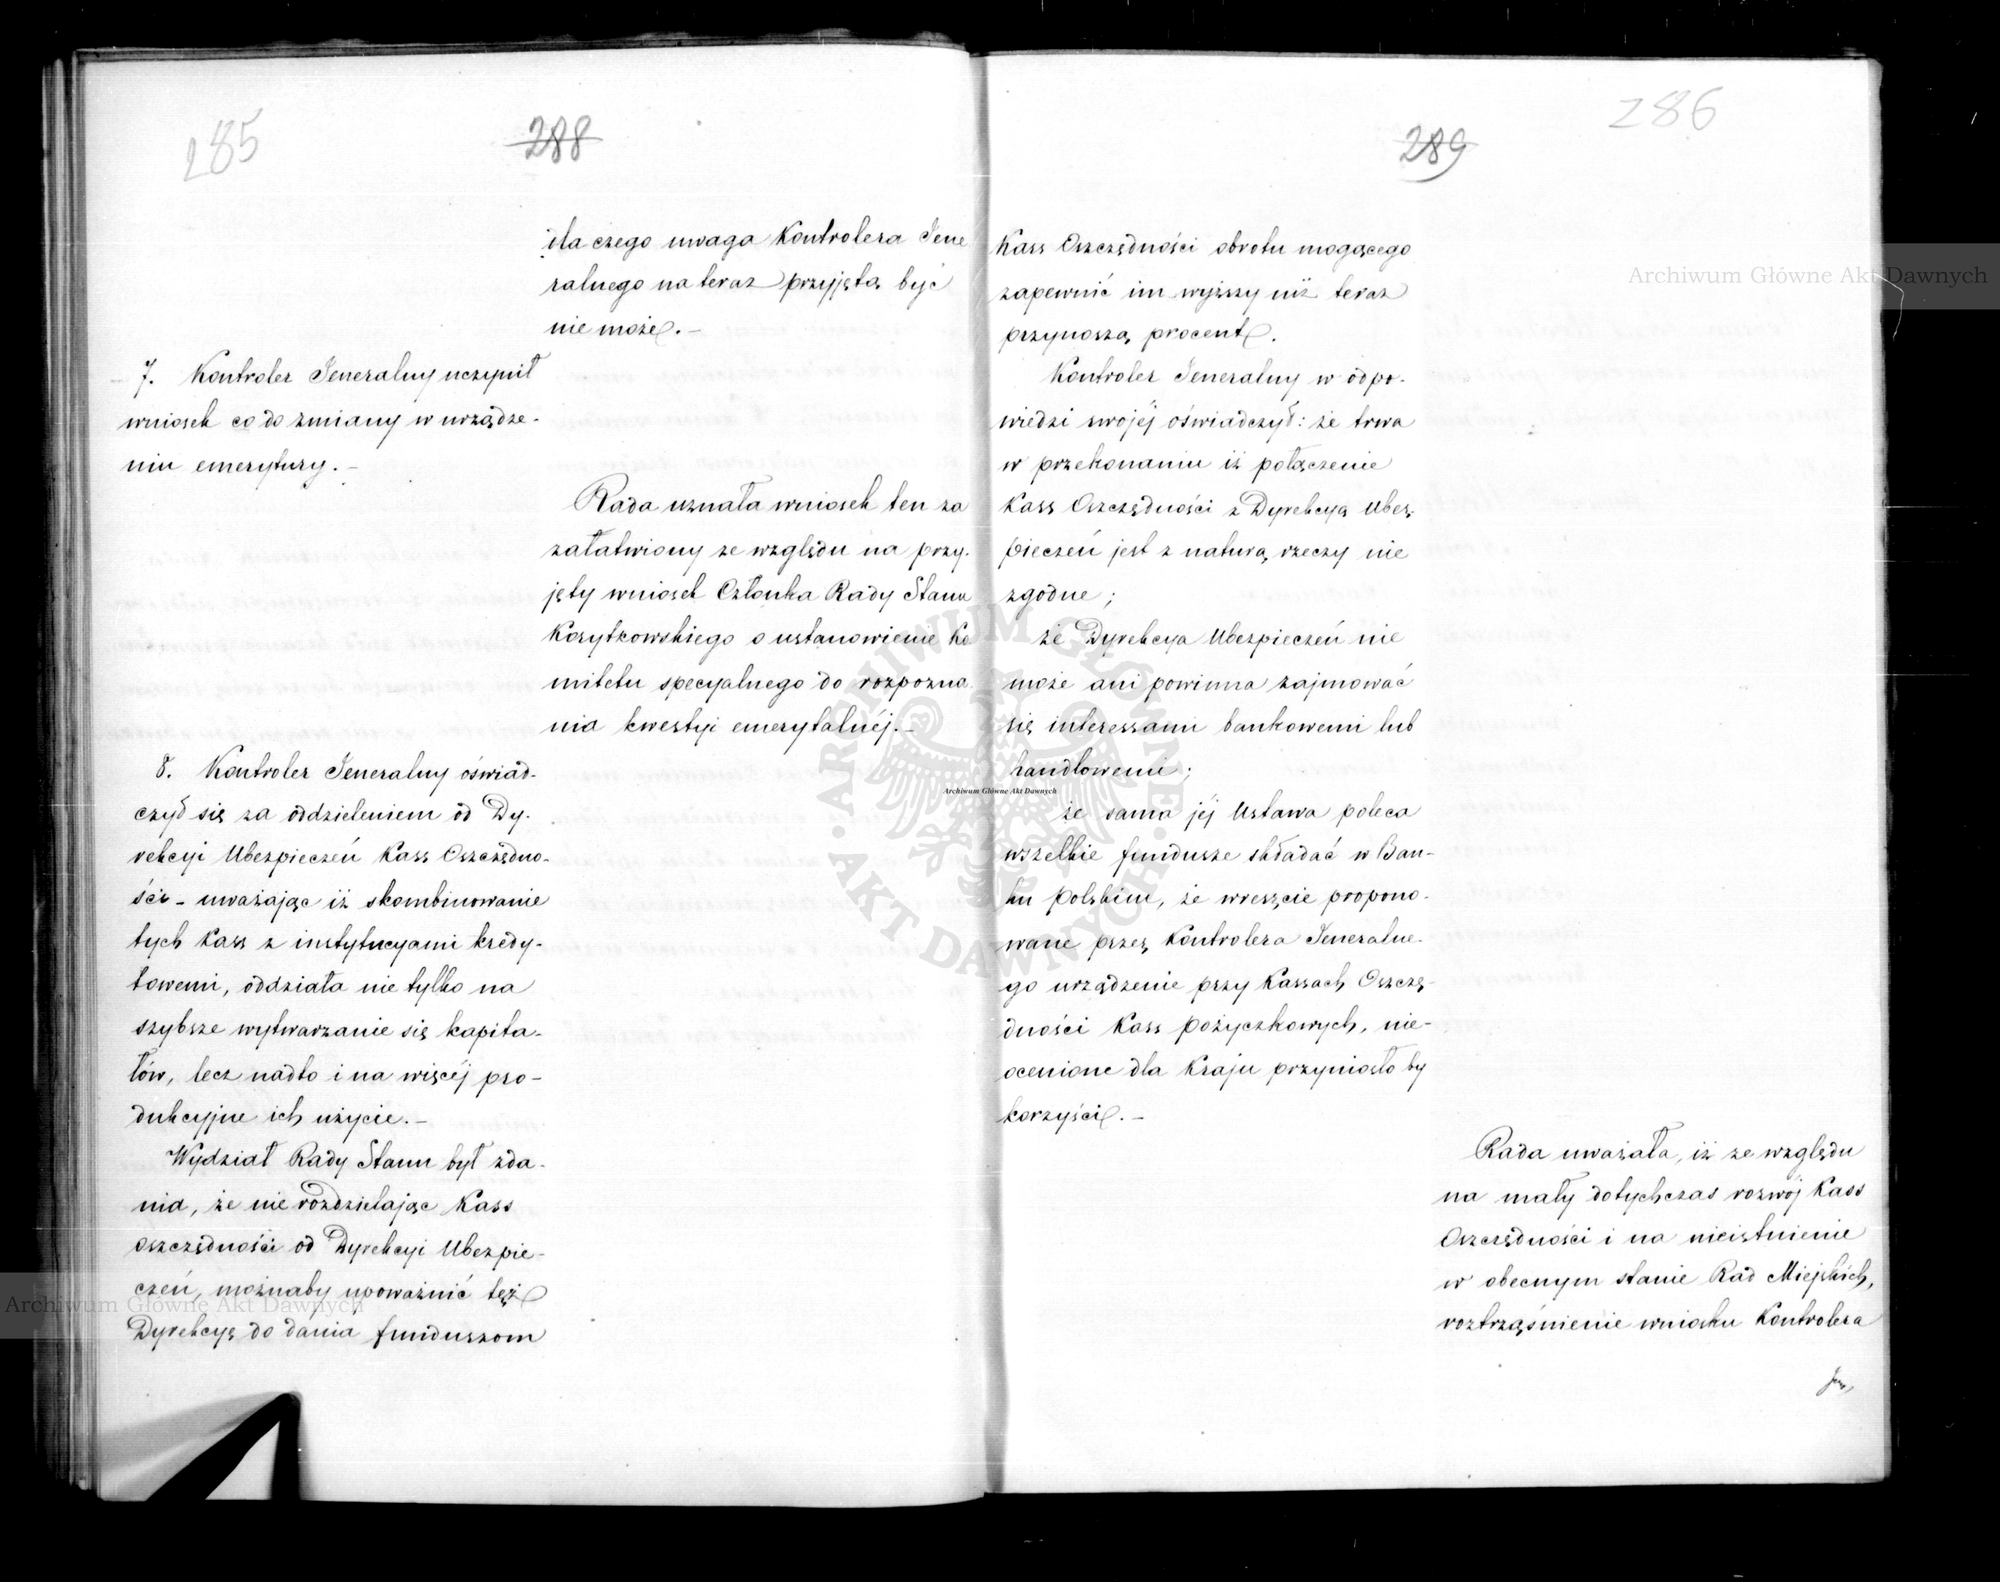 285
288
dla czego uwaga Kontrolera Jene
ralnego na teraz przyjętą być
nie może. –
7. Kontroler Jeneralny uczynił
wniosek co do zmiany w urządze-
niu emerytury. –
Rada uznała wniosek ten za
załatwiony ze względu na przy-
jęty wniosek Członka Rady Stanu
Korytkowskiego o ustanowienie Ko
mitetu specyalnego do rozpozna
nia kwestyi emerytalnéj. –
8. Kontroler Jeneralny oświad-
czył się za oddzieleniem od Dy-
rekcyi Ubezpieczeń Kass Oszczędno-
ści – uważając iż skombinowanie
tych Kass z instytucyami kredy-
towemi, oddziała nie tylko na
szybsze wytwarzanie się kapita-
łów, lecz nadto i na więcéj pro-
dukcyjne ich użycie. –
Wydział Rady Stanu był zda-
nia, że nie rozdzielając Kass
Oszczędności od Dyrekcyi Ubezpie-
czeń, możnaby upoważnić też
Dyrekcyę do dania funduszom
286
289
Kass Oszczędności obrotu mogącego
zapewnić im wyższy niż teraz
przynoszą procent.
Kontroler Jeneralny w odpo-
wiedzi swojéj oświadczył: że trwa
w przekonaniu iż połączenie
Kass Oszczędności z Dyrekcyą Ubez
pieczeń jest z naturą rzeczy nie
zgodne;
że Dyrekcya Ubezpieczeń nie
może ani powinna zajmować
się interessami bankowemi lub
handlowemi;
że sama jéj Ustawa poleca
wszelkie fundusze składać w Ban-
ku Polskim, że wreszcie propono-
wane przez Kontrolera Jeneralne-
go urządzenie przy Kassach Oszczę-
dności Kass pożyczkowych, nie-
ocenione dla Kraju przyniosło by
korzyści. –
Rada uważała, iż ze względu
na mały dotychczas rozwój Kass
Oszczędności i na nieistnienie
w obecnym stanie Rad Miejskich,
roztrząśnienie wniosku Kontrolera
Archiwum Główne Akt Dawnych
Archiwum Główne Akt Dawnych
Archiwum Główne Akt Dawnych
ARCHIWUM GŁÓWNE · AKT DAWNYCH ·